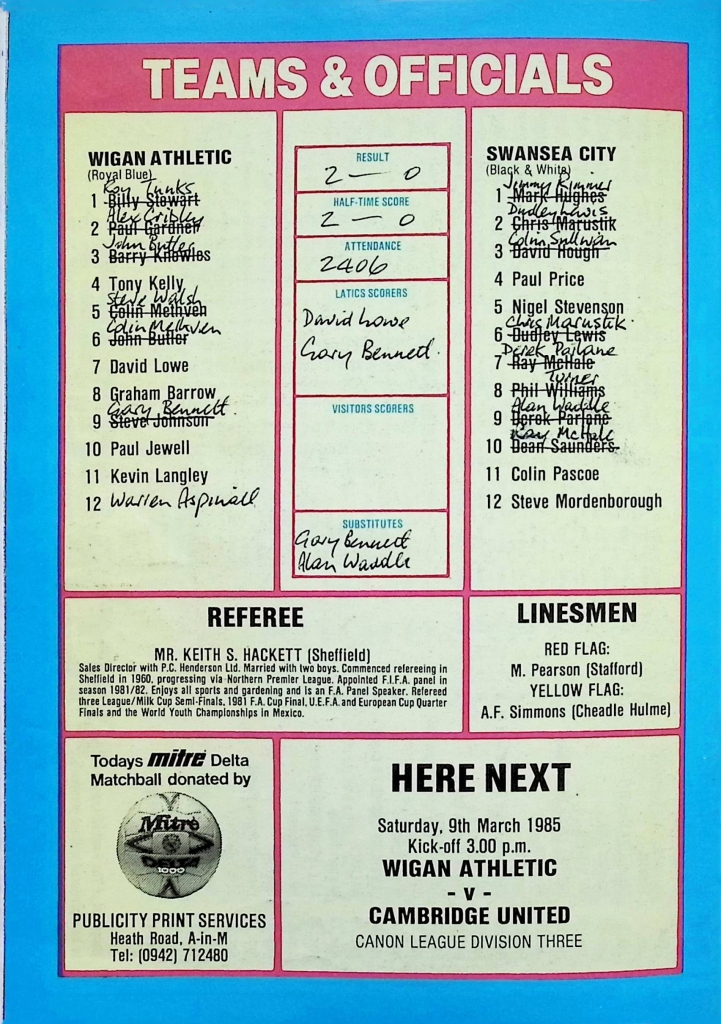 TEAMS & OFFICIALS
WIGAN ATHLETIC
(Royal Blue)
Roy Tunks
1 Billy Stewart
Alex Cribley
2 Paul Gardner
John Butler
3 Barry Knowles
4 Tony Kelly
Steve Walsh
5 Colin Methven
Colin Methven
6 John Butler
7 David Lowe
8 Graham Barrow
Gary Bennett
9 Steve Johnson
10 Paul Jewell
11 Kevin Langley
12 Warren Aspinall
RESULT
2 — 0
HALF-TIME SCORE
2 — 0
ATTENDANCE
2406
LATICS SCORERS
David Lowe
Gary Bennett
VISITORS SCORERS
SUBSTITUTES
Gary Bennett
Alan Waddle
SWANSEA CITY
(Black & White)
Jimmy Rimmer
1 Mark Hughes
Dudley Lewis
2 Chris Marustik
Colin Sullivan
3 David Hough
4 Paul Price
5 Nigel Stevenson
Chris Marustik
6 Dudley Lewis
Derek Parlane
7 Ray McHale
Turner
8 Phil Williams
Alan Waddle
9 Derek Parlane
Ray McHale
10 Dean Saunders
11 Colin Pascoe
12 Steve Mordenborough
REFEREE
MR. KEITH S. HACKETT (Sheffield)
Sales Director with P.C. Henderson Ltd. Married with two boys. Commenced refereeing in
Sheffield in 1960, progressing via Northern Premier League. Appointed F.I.F.A. panel in
season 1981/82. Enjoys all sports and gardening and is an F.A. Panel Speaker. Refereed
three League/Milk Cup Semi-Finals, 1981 F.A. Cup Final, U.E.F.A. and European Cup Quarter
Finals and the World Youth Championships in Mexico.
LINESMEN
RED FLAG:
M. Pearson (Stafford)
YELLOW FLAG:
A.F. Simmons (Cheadle Hulme)
Todays mitre Delta
Matchball donated by
Mitre
DELTA
1000
PUBLICITY PRINT SERVICES
Heath Road, A-in-M
Tel: (0942) 712480
HERE NEXT
Saturday, 9th March 1985
Kick-off 3.00 p.m.
WIGAN ATHLETIC
- v -
CAMBRIDGE UNITED
CANON LEAGUE DIVISION THREE